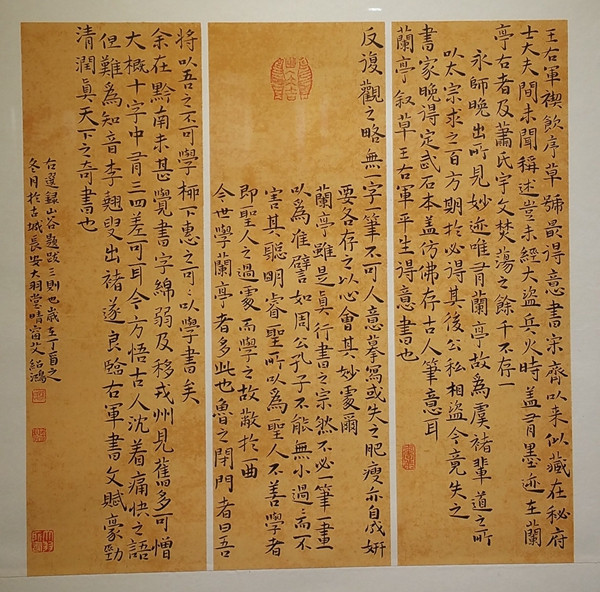 王右軍禊飲序草號最得意書宋齊以來似藏在秘府
士大夫間未聞稱述豈未經大盜兵火時蓋有墨迹在蘭
亭右者及蕭氏宇文焚蕩之餘千不存一
永師晚出所見妙迹唯有蘭亭故為虞褚輩道之所
以太宗求之百方期於必得其後公私相盜今竟失之
書家晚得定武石本蓋仿佛存古人筆意耳
蘭亭敘草王右軍平生得意書也
反復觀之略無一字一筆不可人意摹寫或失之肥瘦亦自成妍
要各存之以心會其妙處爾
蘭亭雖是真行書之宗然不必一筆一畫
以為准譬如周公孔子不能無小過過而不
害其聰明睿聖所以為聖人不善學者
即聖人之過處而學之故蔽於一曲
今世學蘭亭者多此也魯之閉門者曰吾
將以吾之不可學柳下惠之可可以學書矣
余在黔南未甚覺書字綿弱及移戎州見舊多可憎
大概十字中有三四差可耳今方悟古人沈着痛快之語
但難為知音李翹叟出褚遂良臨右軍書文賦豪勁
清潤真天下之奇書也
右選錄山谷題跋三則也歲在丁酉之
冬月於古城長安大羽堂晴窗艾紹鴻